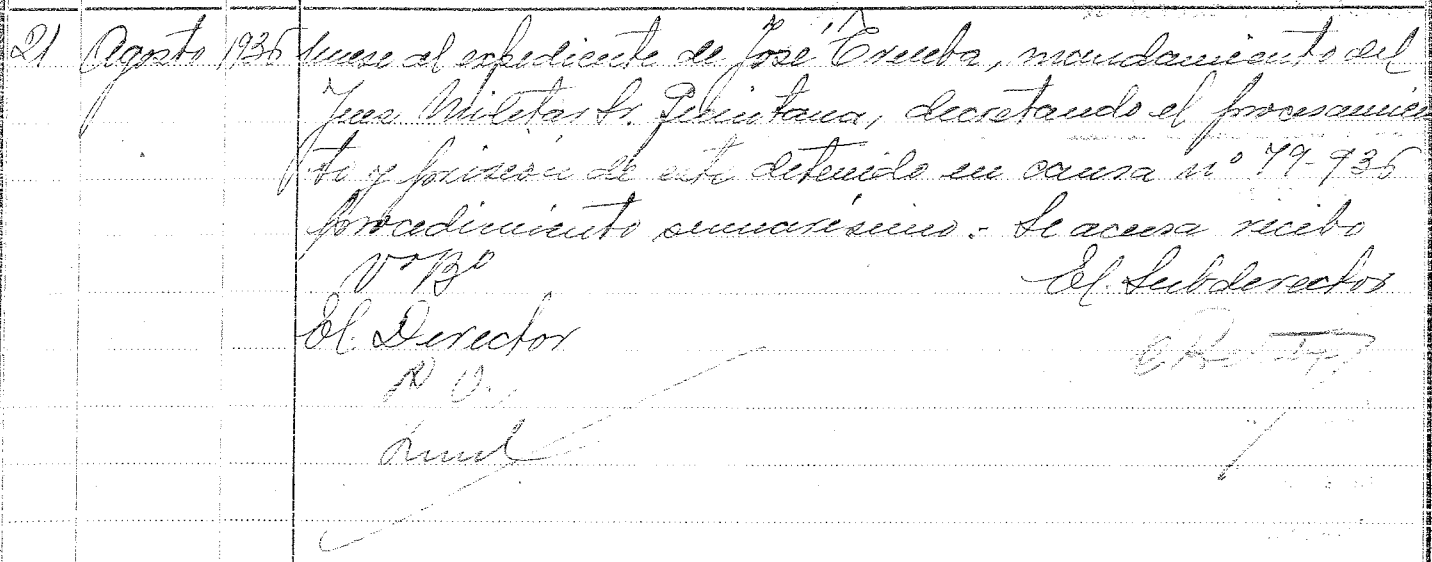 21 Agosto 1936 Unese al expediente de José Trueba, mandamiento del
Juez Militar Sr. Quintana, decretando el procesamien
to y prisión de este detenido en causa nº 79-936
procedimiento sumarísimo.- Se acusa recibo
VºBº El Subdirector
El Director